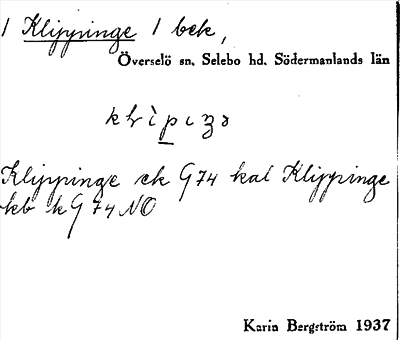 1 Klippinge 1 bek,
Överselö sn. Selebo hd. Södermanlands län
Klippinge ek G74 kal Klippinge
kb k G74 NO
Karin Bergström 1937